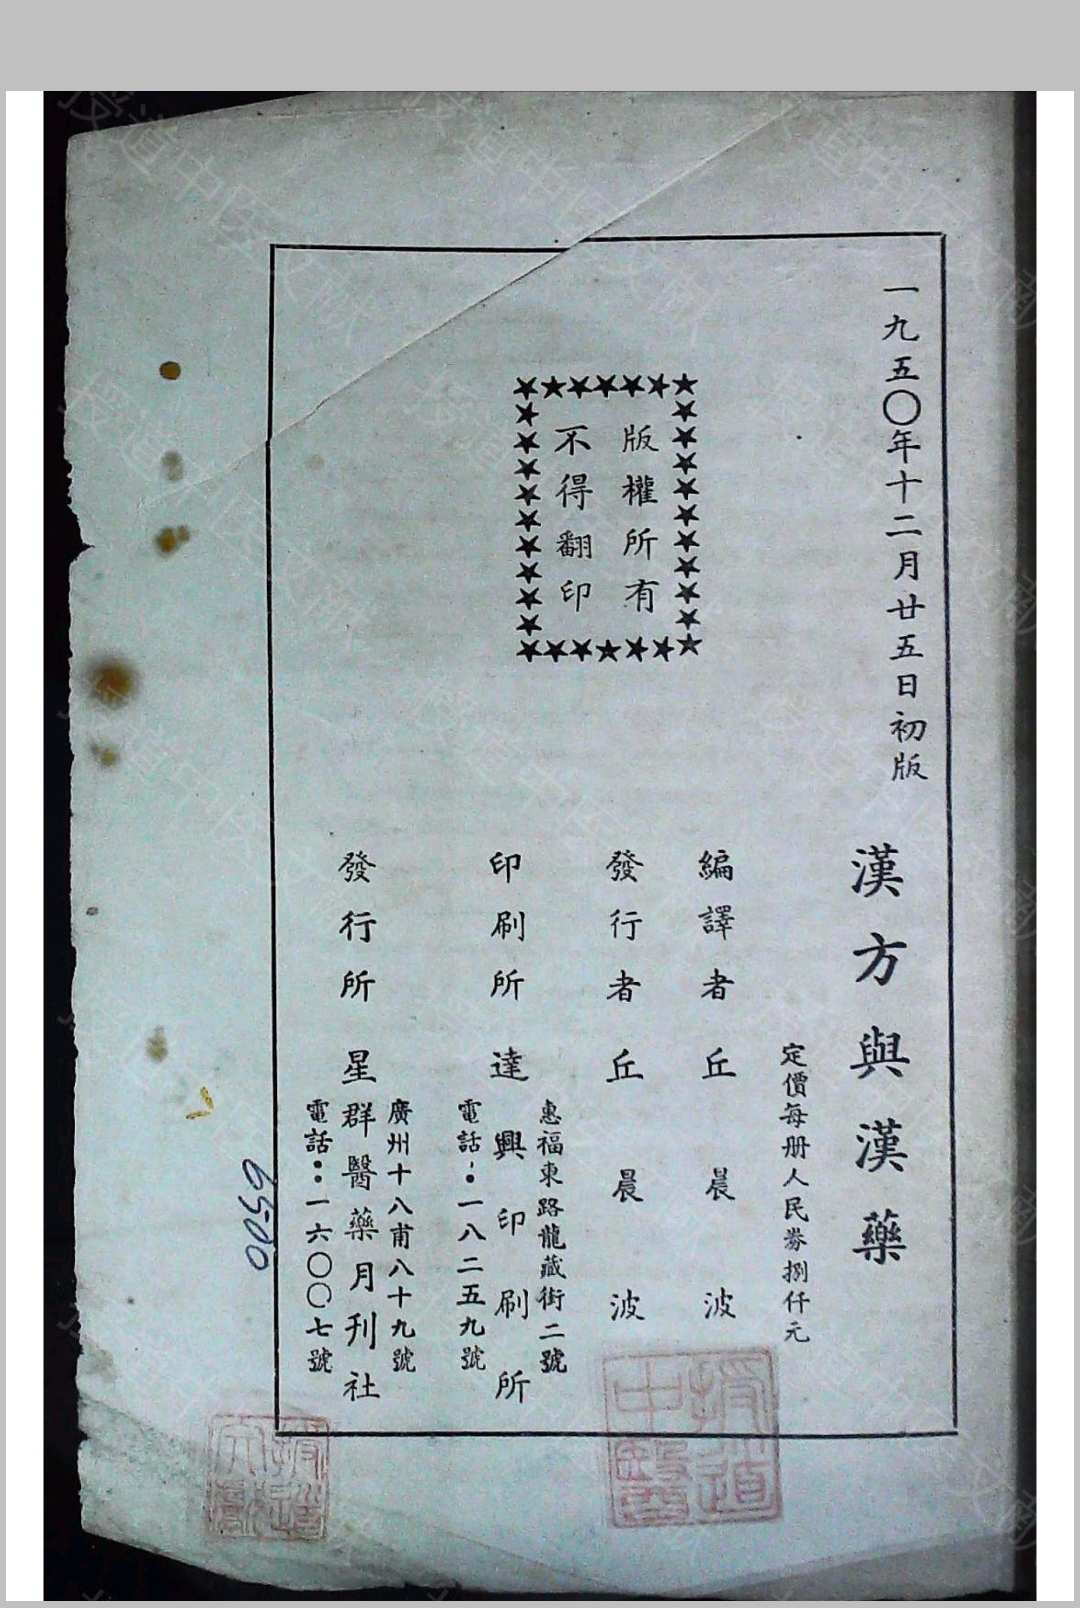 一九五〇年十二月廿五日初版
漢方與漢藥
定價每册人民券捌仟元
版權所有
不得翻印
編譯者 丘晨波
發行者 丘晨波
惠福東路龍藏街二號
印刷所 達興印刷所
電話：一八二五九號
廣州十八甫八十九號
發行所 星群醫藥月刊社
電話：一六〇〇七號
6500
授道中醫
授道文獻
授道中医文献